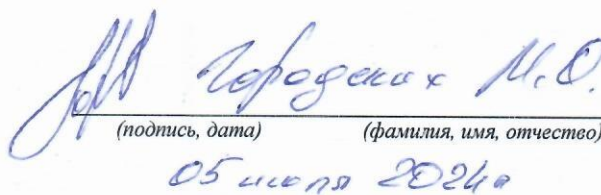 Городских М.О.
(подпись, дата) (фамилия, имя, отчество)
05 июля 2024г